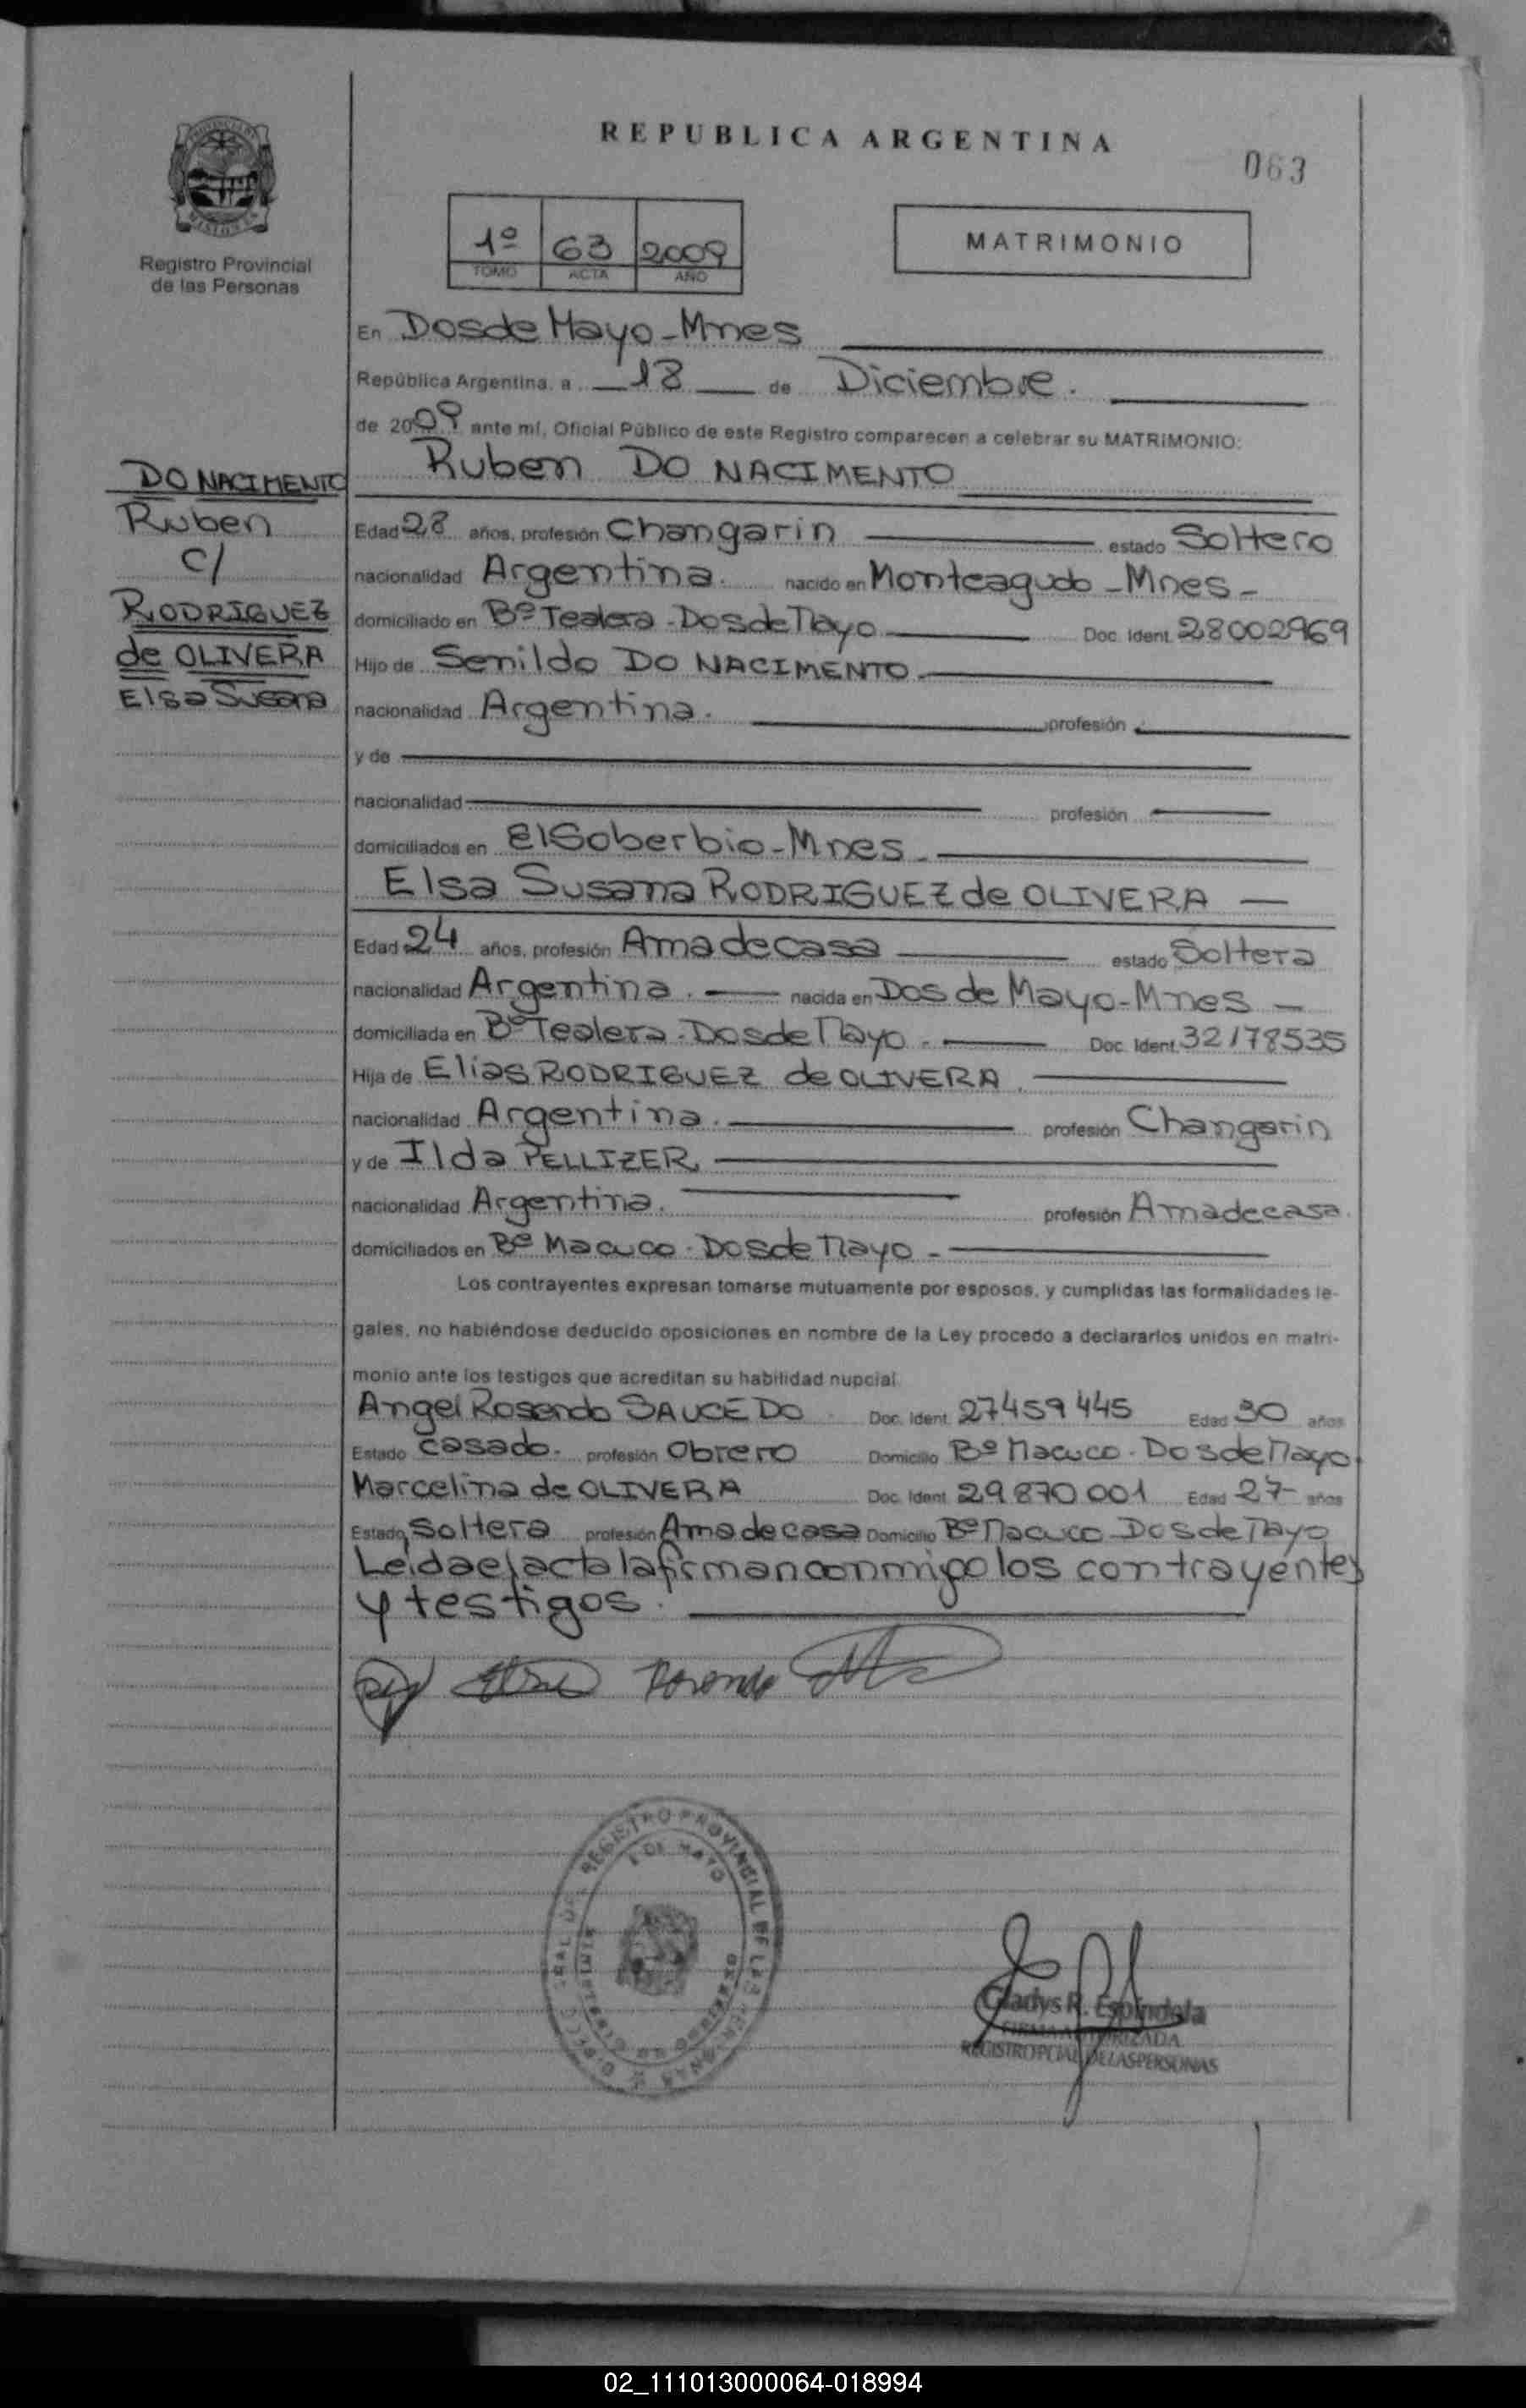 REPUBLICA ARGENTINA
063
1º 63 2009
TOMO ACTA AÑO
MATRIMONIO
Registro Provincial
de las Personas
En Dos de Mayo - Mnes
República Argentina, a 18 de Diciembre.
de 2009 ante mí, Oficial Público de este Registro comparecen a celebrar su MATRIMONIO:
Ruben DO NACIMENTO
DO NACIMENTO
Ruben
c/
RODRIGUEZ
de OLIVERA
Elsa Susana
Edad 28 años, profesión Changarin estado Soltero
nacionalidad Argentina. nacido en Monteagudo - Mnes -
domiciliado en Bº Tealera - Dos de Mayo Doc. Ident. 28002969
Hijo de Senildo DO NACIMENTO
nacionalidad Argentina. profesión
y de
nacionalidad profesión
domiciliados en El Soberbio - Mnes.
Elsa Susana RODRIGUEZ de OLIVERA
Edad 24 años, profesión Ama de casa estado Soltera
nacionalidad Argentina. nacida en Dos de Mayo - Mnes
domiciliada en Bº Tealera - Dos de Mayo. Doc. Ident. 32178535
Hija de Elias RODRIGUEZ de OLIVERA.
nacionalidad Argentina. profesión Changarin
y de Ilda PELLIZER,
nacionalidad Argentina. profesión Ama de casa.
domiciliados en Bº Macuco - Dos de Mayo -
Los contrayentes expresan tomarse mutuamente por esposos, y cumplidas las formalidades le-
gales, no habiéndose deducido oposiciones en nombre de la Ley procedo a declararlos unidos en matri-
monio ante los testigos que acreditan su habilidad nupcial
Angel Rosendo SAUCEDO Doc. Ident. 27459445 Edad 30 años
Estado casado. profesión Obrero Domicilio Bº Macuco - Dos de Mayo.
Marcelina de OLIVERA Doc. Ident. 29870001 Edad 27 años
Estado Soltera profesión Ama de casa Domicilio Bº Macuco Dos de Mayo
Leida el acta la firman conmigo los contrayentes
y testigos.
REGISTRO PROVINCIAL DE LAS PERSONAS
Gladys R. Espindola
FIRMA AUTORIZADA
REGISTRO PCIAL DE LAS PERSONAS
02_111013000064-018994